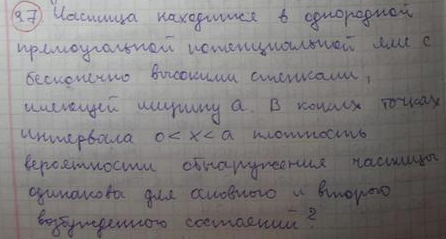 37 Частица находится в однородной
прямоугольной потенциальной яме с
бесконечно высокими стенками,
имеющей ширину a. В каких точках
интервала 0 < x < a плотность
вероятности обнаружения частицы
одинакова для основного и второго
возбужденного состояний?